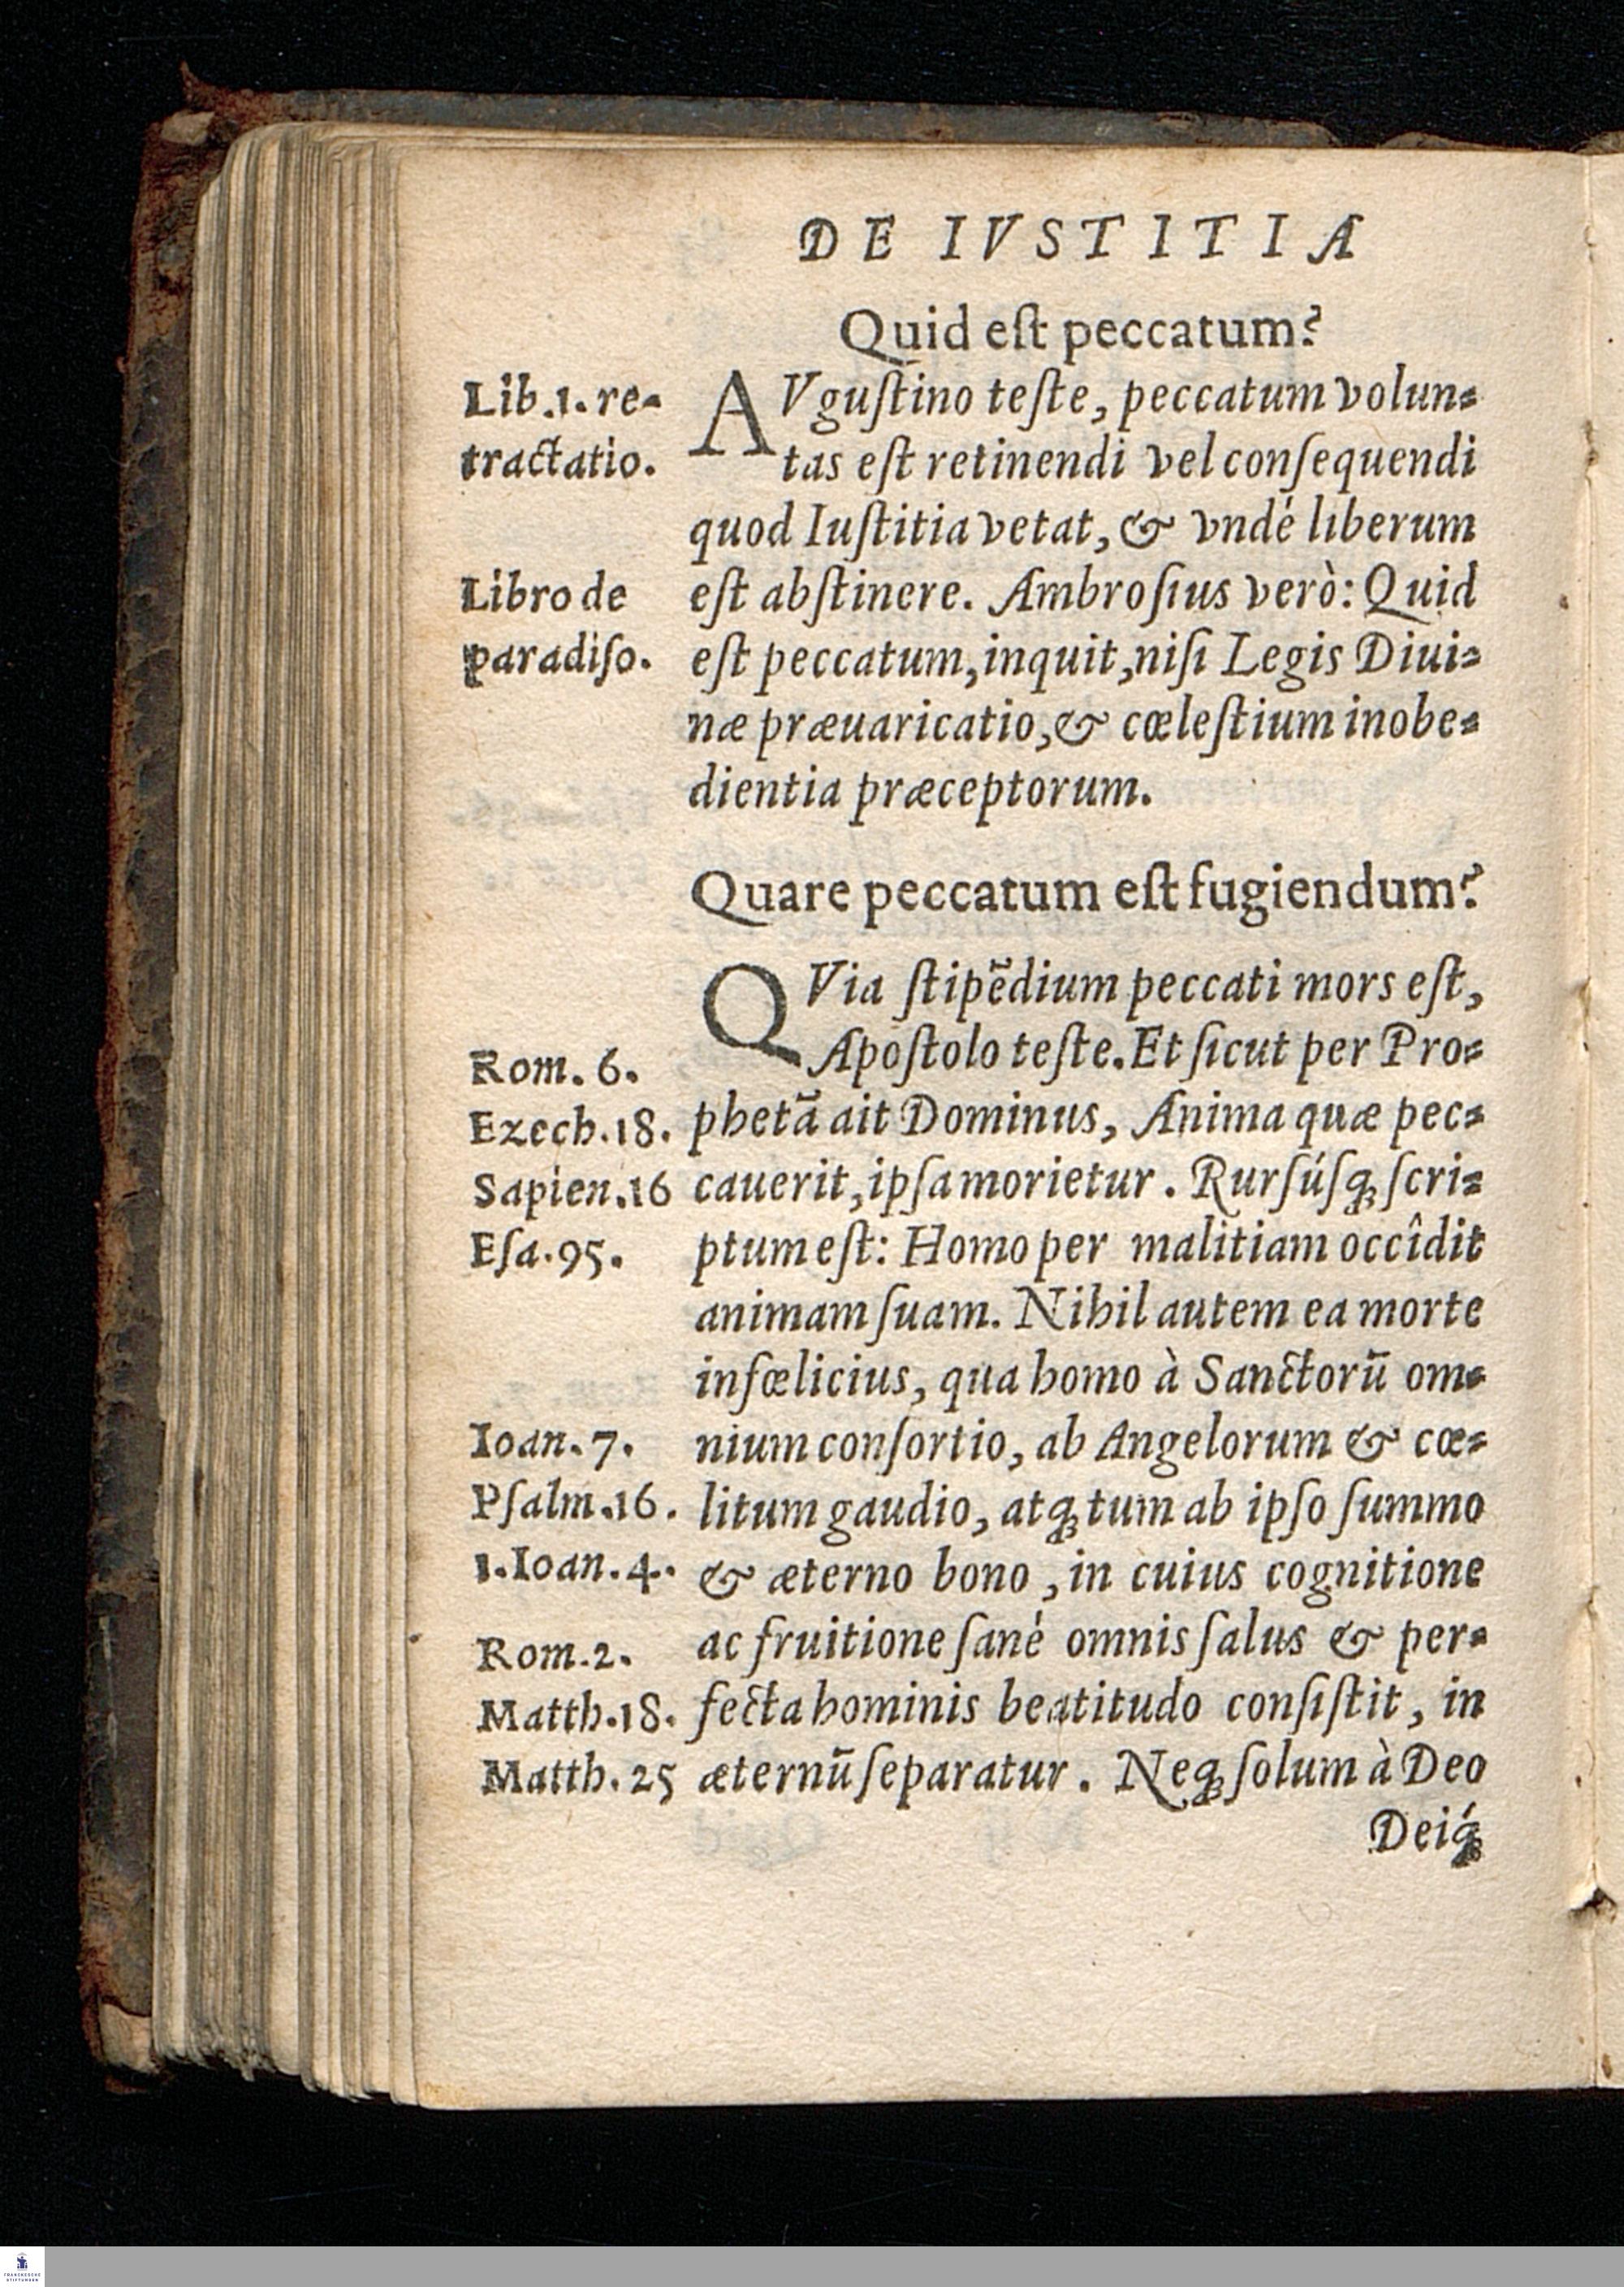 DE IVSTITIA
Quid eſt peccatum?
Lib.1. re-
tractatio.
AVguſtino teſte, peccatum volun-
tas eſt retinendi vel conſequendi
quod Iuſtitia vetat, & vndé liberum
Libro de
paradiſo.
eſt abſtinere. Ambroſius verò: Quid
eſt peccatum, inquit, niſi Legis Diui-
næ præuaricatio, & cœleſtium inobe-
dientia præceptorum.
Quare peccatum eſt fugiendum?
QVia ſtipẽdium peccati mors eſt,
Apoſtolo teſte. Et ſicut per Pro-
Rom. 6.
Ezech. 18.
Sapien. 16
Eſa. 95.
phetã ait Dominus, Anima quæ pec-
cauerit, ipſa morietur. Rurſúſq; ſcri-
ptum eſt: Homo per malitiam occîdit
animam ſuam. Nihil autem ea morte
infœlicius, qua homo à Sanctorũ om-
Ioan. 7.
Pſalm. 16.
1. Ioan. 4.
nium conſortio, ab Angelorum & cœ-
litum gaudio, atq; tum ab ipſo ſummo
& æterno bono, in cuius cognitione
ac fruitione ſané omnis ſalus & per-
Rom. 2.
Matth. 18.
Matth. 25
fecta hominis beatitudo conſiſtit, in
æternũ ſeparatur. Neq; ſolum à Deo
Deiq́;
FRANCKESCHE
STIFTUNGEN